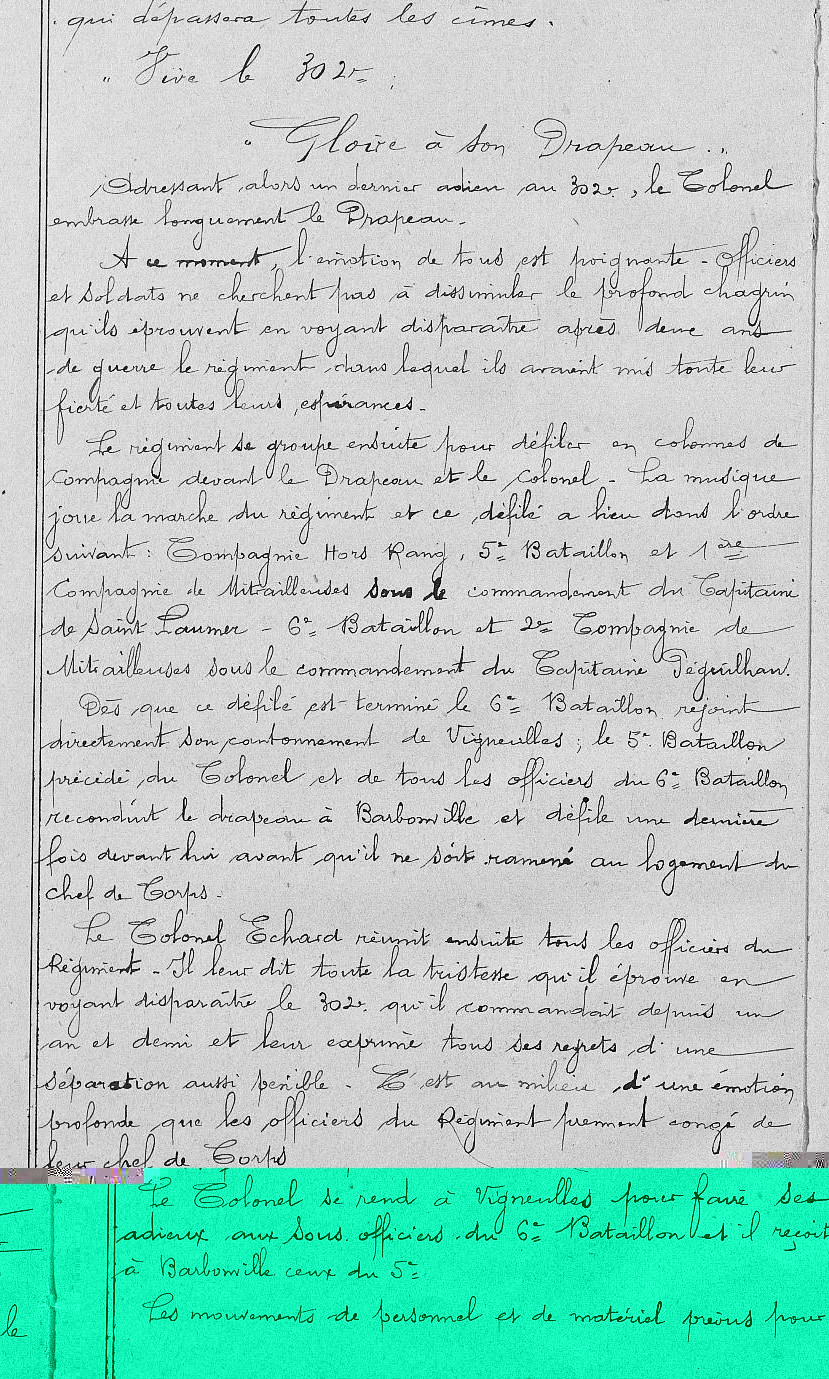 qui dépassera toutes les cîmes.
" Vive le 302e
" Gloire à son Drapeau . "
Adressant alors un dernier adieu au 302e, le Colonel
embrasse longuement le Drapeau.
A ce moment, l'émotion de tous est poignante - Officiers
et soldats ne cherchent pas à dissimuler le profond chagrin
qu'ils éprouvent en voyant disparaître après deux ans
de guerre le régiment dans lequel ils avaient mis toute leur
fierté et toutes leurs espérances.
Le régiment se groupe ensuite pour défiler en colonnes de
Compagnie devant le Drapeau et le Colonel - La musique
joue la marche du régiment et ce défilé a lieu dans l'ordre
suivant : Compagnie Hors Rang, 5e Bataillon et 1ère
Compagnie de Mitrailleuses sous le commandement du Capitaine
de Saint Laumer - 6e Bataillon et 2e Compagnie de
Mitrailleuses sous le commandement du Capitaine Péguilhan.
Dès que ce défilé est terminé le 6e Bataillon rejoint
directement son cantonnement de Vigneulles ; le 5e Bataillon
précédé du Colonel et de tous les officiers du 6e Bataillon
reconduit le drapeau à Barbonville et défile une dernière
fois devant lui avant qu'il ne soit ramené au logement du
chef de Corps.
Le Colonel Echard réunit ensuite tous les officiers du
Régiment - Il leur dit toute la tristesse qu'il éprouve en
voyant disparaître le 302e qu'il commandait depuis un
an et demi et leur exprime tous ses regrets d'une
séparation aussi pénible - C'est au milieu d'une émotion
profonde que les officiers du Régiment prennent congé de
leur chef de Corps
Le Colonel se rend à Vigneulles pour faire ses
adieux aux sous-officiers du 6e Bataillon et il reçoit
à Barbonville ceux du 5e
Les mouvements de personnel et de matériel prévus pour
le